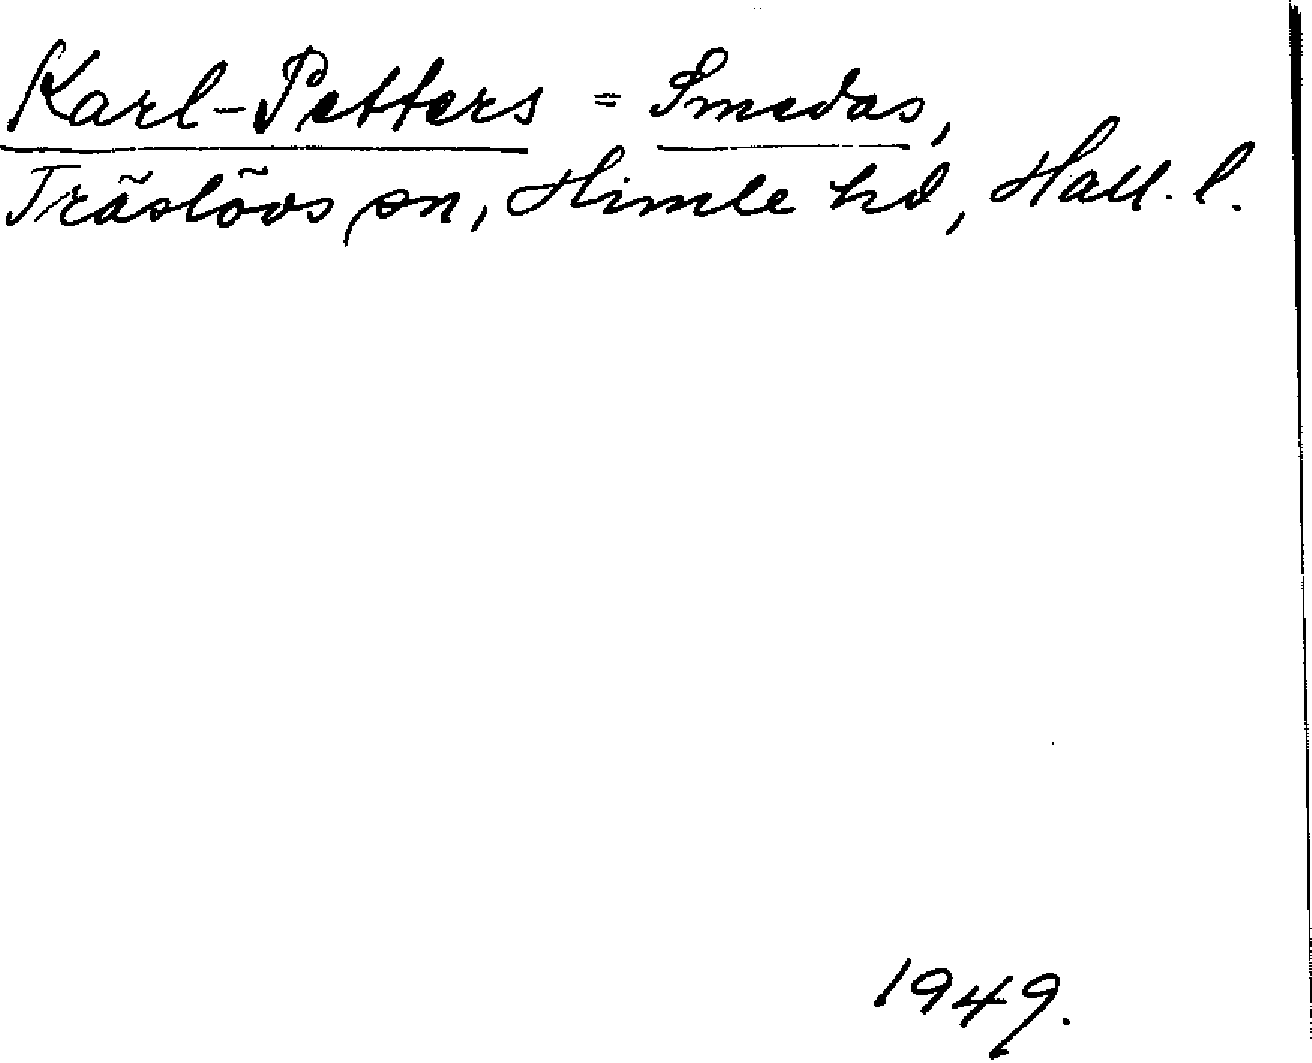 Karl-Petters = Smedas,
Träslövs sn, Himle hd, Hall. l.
1949.